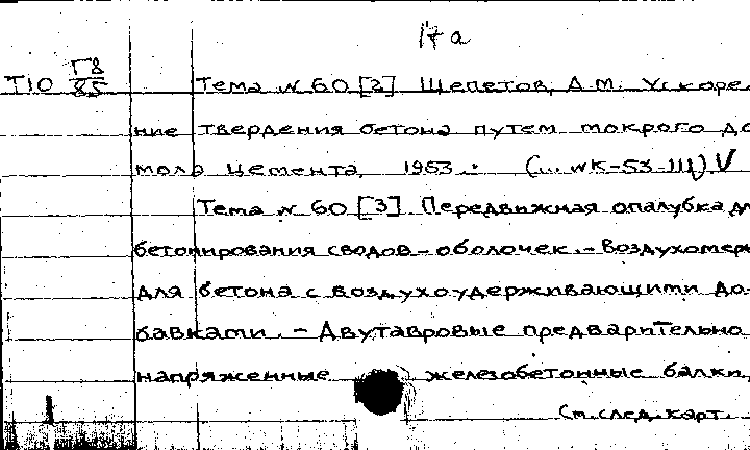 17а
Т10 Г8/85 Тема № 60 [2] Щепетов, А.М. Ускоре
ние твердения бетона путем мокрого до
мола цемента, 1953. (... МК-53-111) V
Тема № 60 [3]. Передвижная опалубка для
бетонирования сводов-оболочек. - Воздухомер
для бетона с воздухоудерживающими до-
бавками. - Двутавровые предварительно
напряженные железобетонные балки,
см. след. карт.